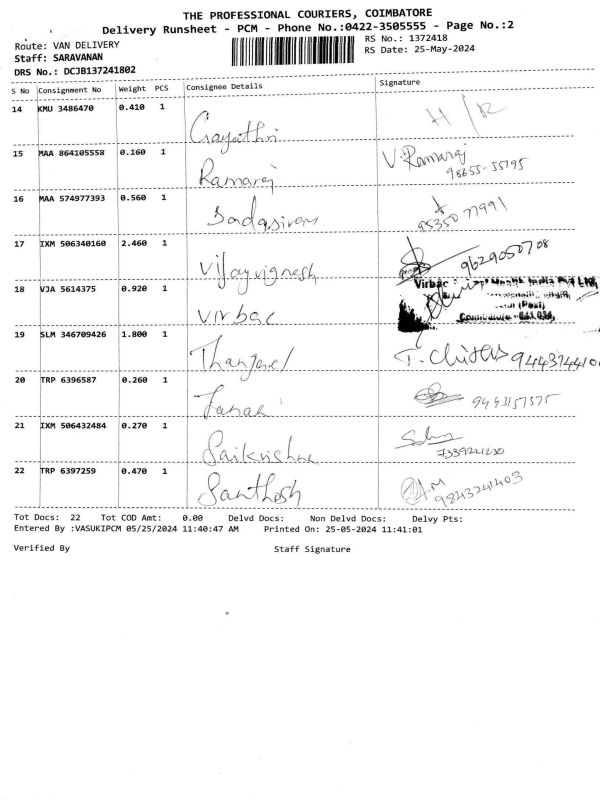 THE PROFESSIONAL COURIERS, COIMBATORE
Delivery Runsheet - PCM - Phone No.:0422-3505555 - Page No.:2
Route: VAN DELIVERY
RS No.: 1372418
Staff: SARAVANAN
RS Date: 25-May-2024
DRS No.: DCJB137241802
S No Consignment No Weight PCS Consignee Details Signature
14 KMU 3486470 0.410 1 Gayathri H/R
15 MAA 864105558 0.160 1 Ramaraj V. Ramaraj
96655-55795
16 MAA 574977393 0.560 1 Sadasivam 95350 77991
17 IXM 506340160 2.460 1 Vijayvignesh 9629050708
18 VJA 5614375 0.920 1 Virbac Virbac Health India Pvt Ltd,
(Post)
Coimbatore
19 SLM 346709426 1.800 1
20 TRP 6396587 0.260 1 9443157575
21 IXM 506432484 0.270 1 Saikrishna
7339221230
22 TRP 6397259 0.470 1 Santhosh A.M
9843241403
Tot Docs: 22 Tot COD Amt: 0.00 Delvd Docs: Non Delvd Docs: Delvy Pts:
Entered By :VASUKIPCM 05/25/2024 11:40:47 AM Printed On: 25-05-2024 11:41:01
Verified By Staff Signature